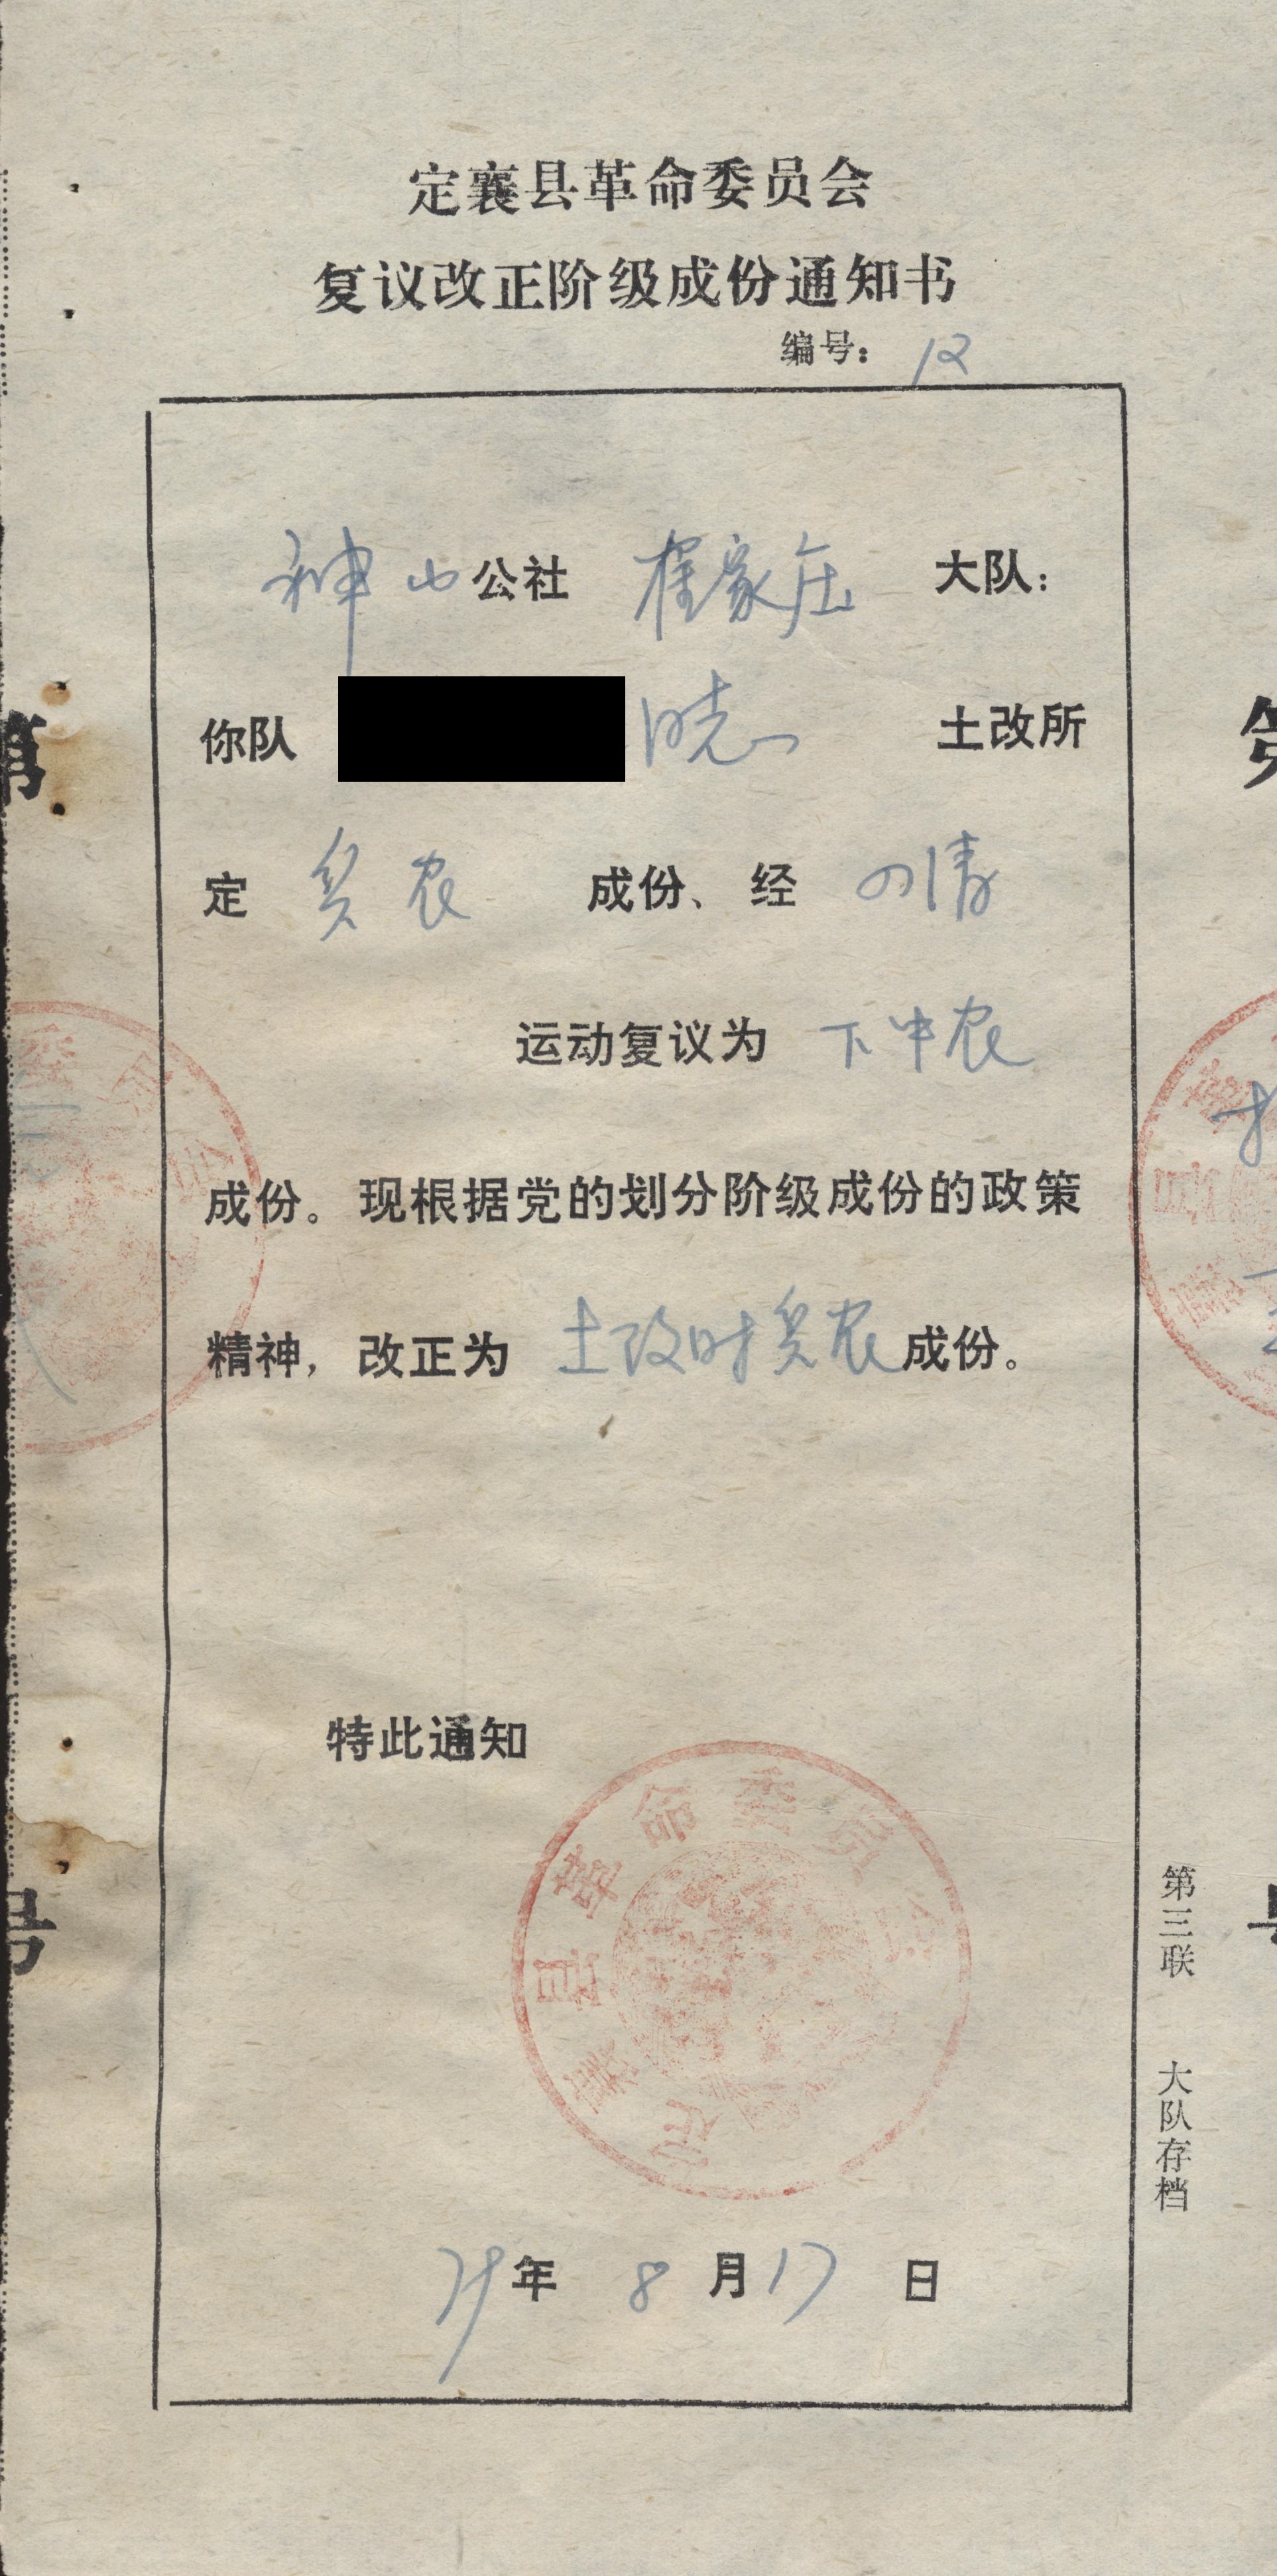 定襄县革命委员会
复议改正阶级成份通知书
编号：12
神山公社 崔家庄 大队：
你队 晓 土改所
定 贫农 成份、经 四清
运动复议为 下中农
成份。现根据党的划分阶级成份的政策
精神，改正为 土改时贫农 成份。
特此通知
定襄县革命委员会
79年 8月17日
第三联 大队存档
第
号